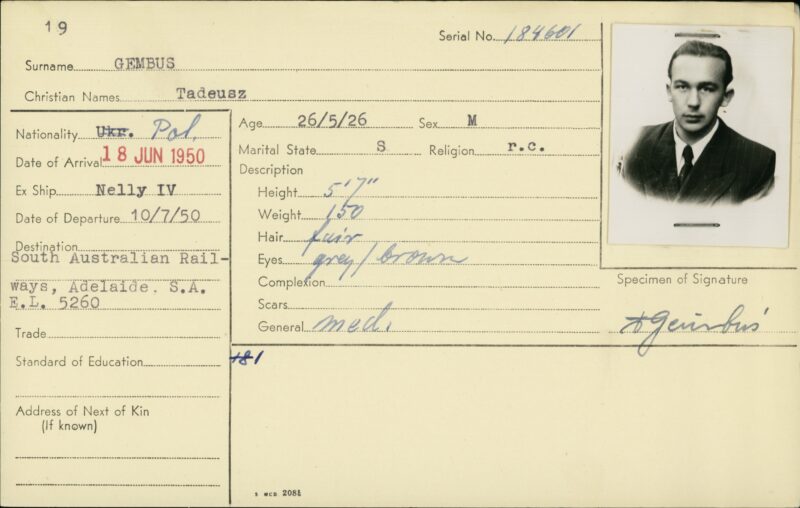 19
Serial No. 184601
Surname GEMBUS
Christian Names Tadeusz
Nationality Ukr. Pol.
Date of Arrival 18 JUN 1950
Ex Ship Nelly IV
Date of Departure 10/7/50
Destination
South Australian Rail-
ways, Adelaide. S.A.
E.L. 5260
Trade
Standard of Education
Address of Next of Kin
(If known)
Age 26/5/26 Sex M
Marital State S Religion r.c.
Description
Height 5'7"
Weight 150
Hair fair
Eyes grey/brown
Complexion
Scars
General med.
Specimen of Signature
TGembuś
181
S MCD 2081